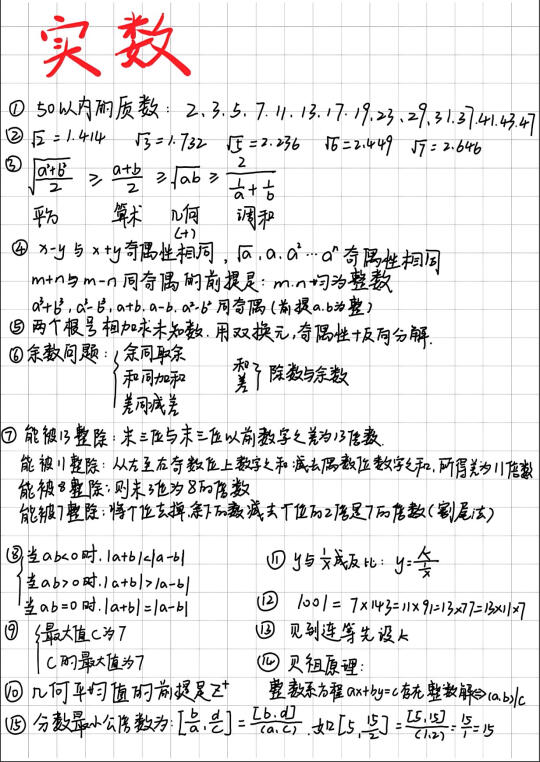 实数
① 50以内的质数: 2、3、5、7、11、13、17、19、23、29、31、37、41、43、47
② √2 = 1.414 √3 = 1.732 √5 = 2.236 √6 = 2.449 √7 = 2.646
③ √((a²+b²)/2) ≥ (a+b)/2 ≥ √ab ≥ 2/(1/a + 1/b)
平方 算术 几何 调和
(+)
④ x-y 与 x+y 奇偶性相同, √a, a, a² … aⁿ 奇偶性相同
m+n与m-n同奇偶的前提是: m.n均为整数
a³+b³, a³-b³, a+b, a-b, a²-b² 同奇偶(前提a.b为整)
⑤ 两个根号相加求未知数. 用双换元, 奇偶性+反向分解.
⑥ 余数问题: { 余同取余
和同加和 和 差 } 除数与余数
差同减差
⑦ 能被13整除: 末三位与末三位以前数字之差为13倍数.
能被11整除: 从左至右奇数位上数字之和减去偶数位数字之和, 所得差为11倍数
能被8整除: 则末3位为8的倍数
能被7整除: 将个位去掉, 余下的数减去个位的2倍是7的倍数(割尾法)
⑧ { 当ab<0时. |a+b|<|a-b|
当ab>0时. |a+b|>|a-b|
当ab=0时. |a+b|=|a-b|
⑨ { 最大值C为7
C的最大值为7
⑩ 几何平均值的前提是Z⁺
⑪ y与1/x成反比: y = K/(1/x)
⑫ 1001 = 7×143=11×91=13×77=13×11×7
⑬ 见到连等先设k
⑭ 贝祖原理:
整数系方程ax+by=c存在整数解⇔(a,b)|c
⑮ 分数最小公倍数为: [b/a, d/c] = [b,d]/(a,c). 如[5, 15/2] = [5,15]/(1,2) = 15/1 = 15